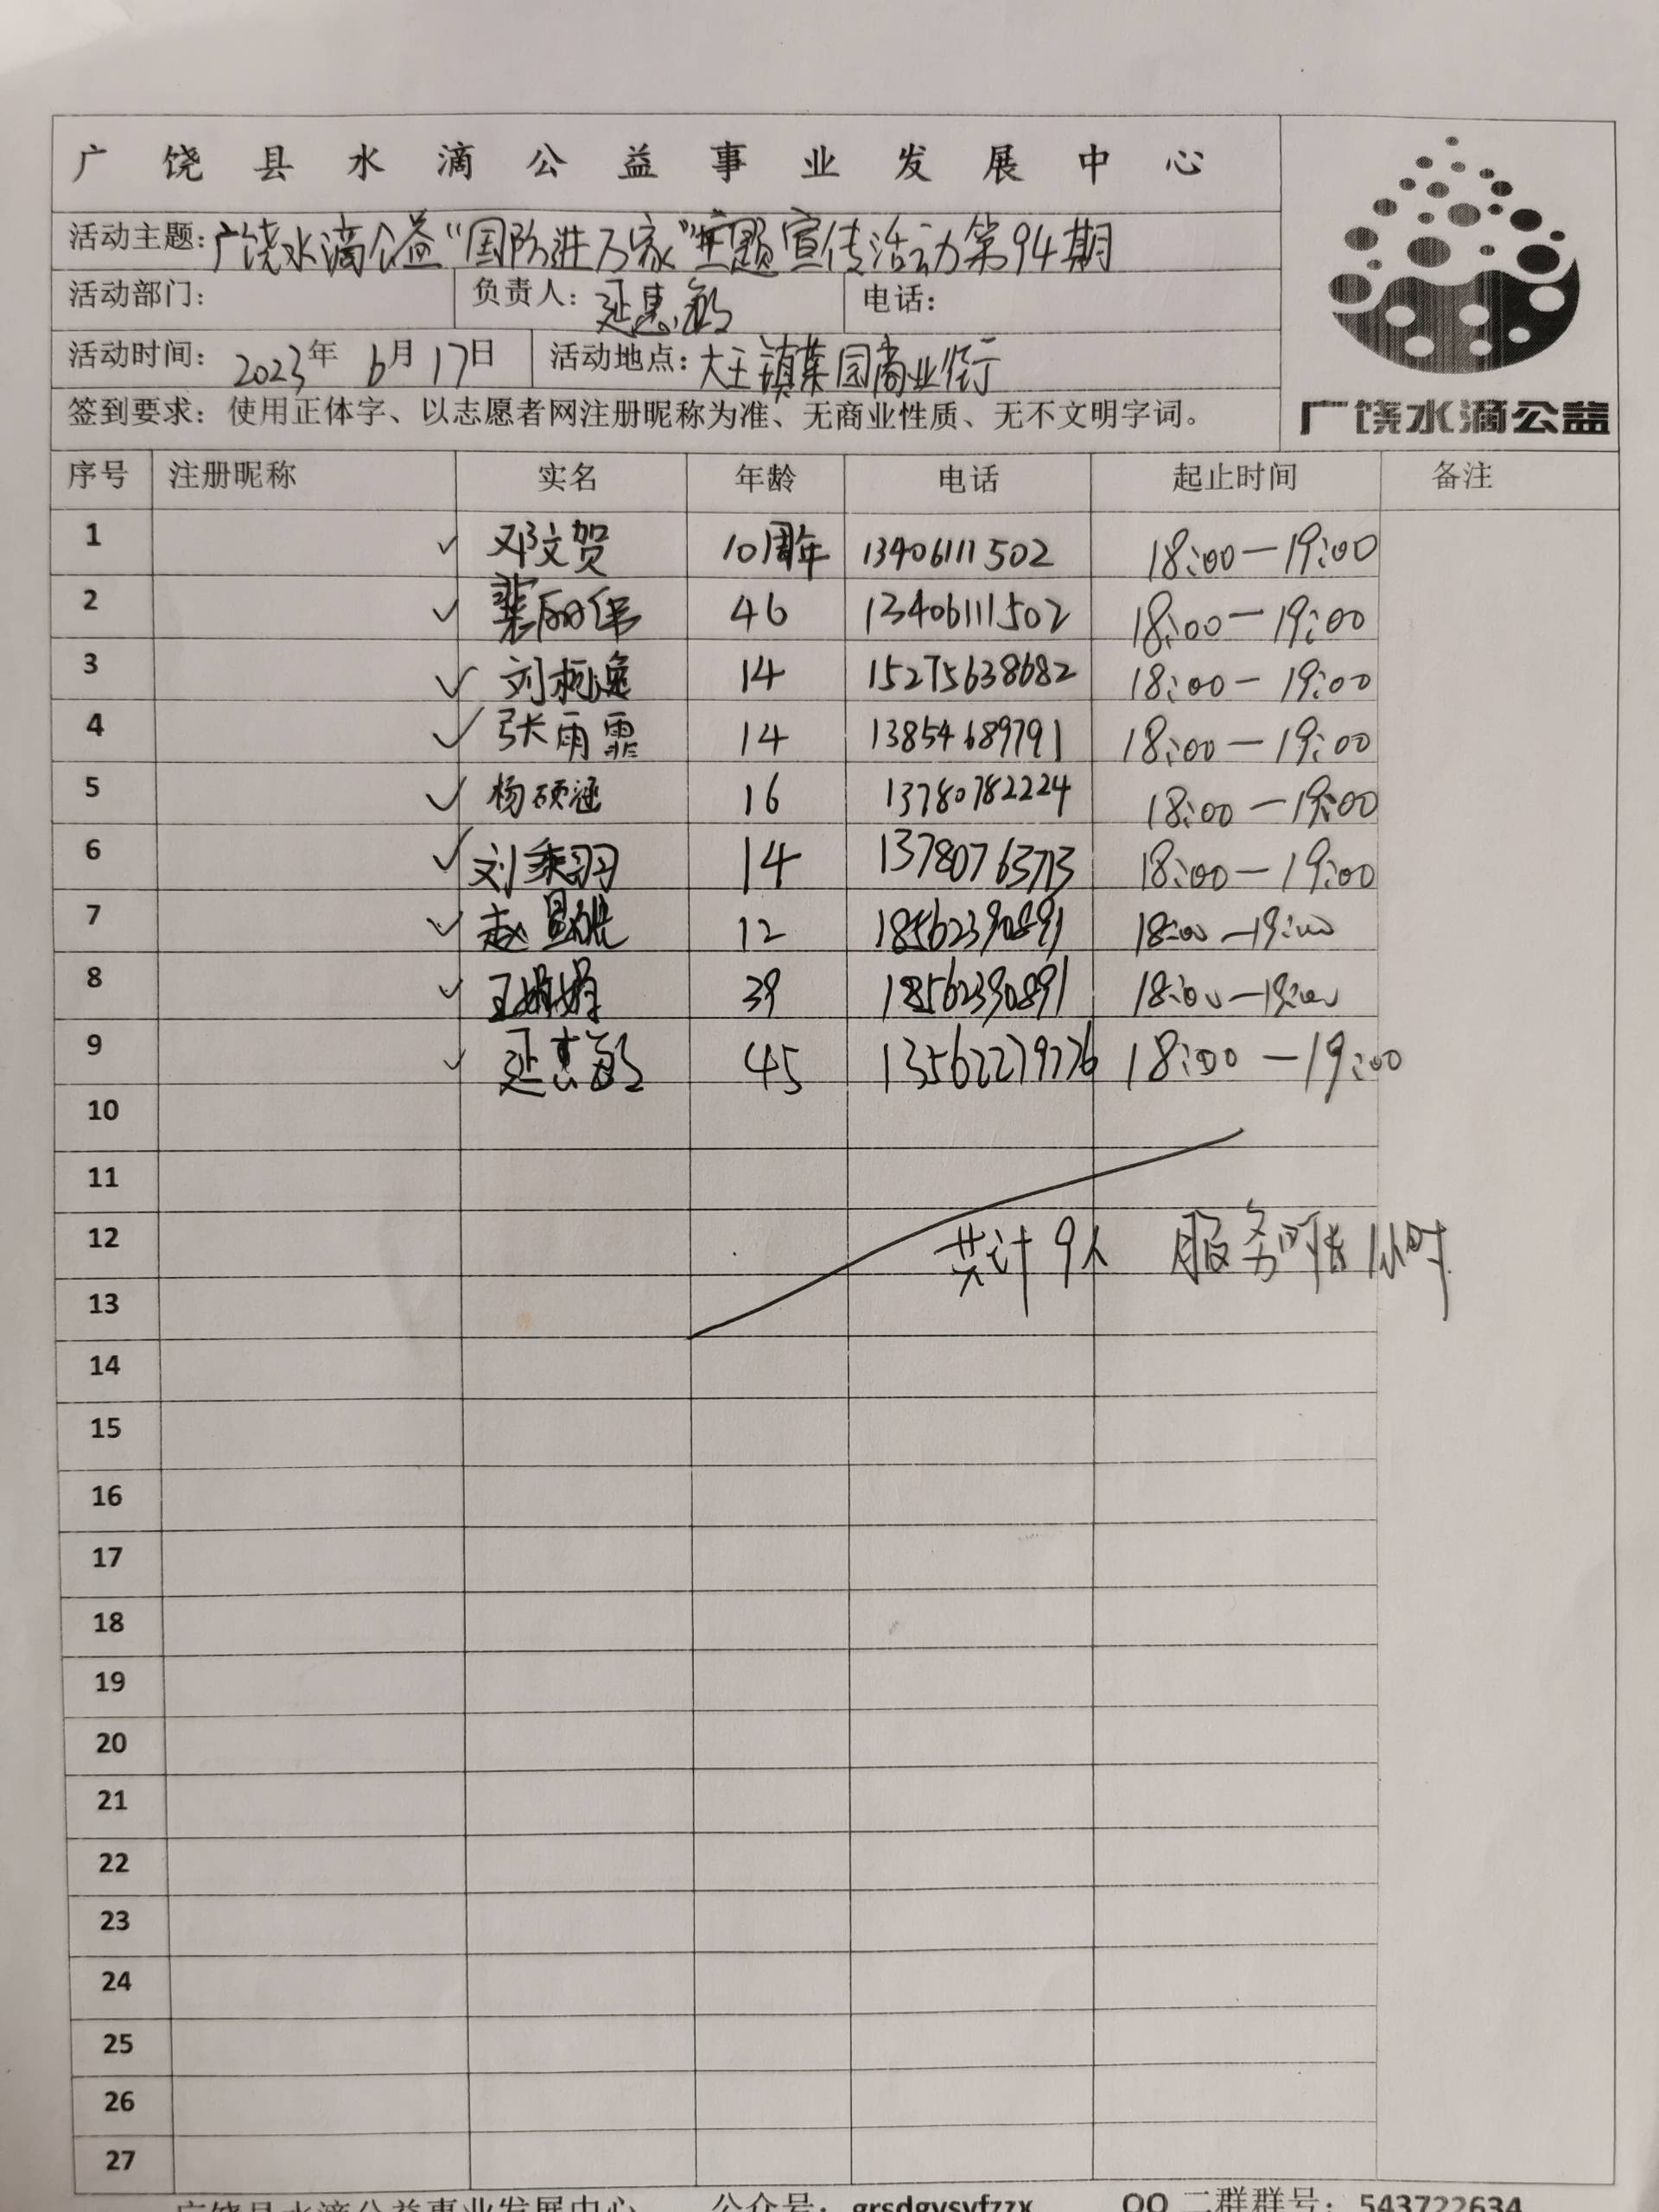 广饶县水滴公益事业发展中心
活动主题：广饶水滴公益“国防进万家”主题宣传活动第94期
活动部门： 负责人：延惠敏 电话：
活动时间：2023年 6月 17日 活动地点：大王镇菜园商业街
签到要求：使用正体字、以志愿者网注册昵称为准、无商业性质、无不文明字词。
广饶水滴公益
序号 注册昵称 实名 年龄 电话 起止时间 备注
1 ✓ 邓文贺 10周年 13406111502 18:00—19:00
2 ✓ 裴丽伟 46 13406111502 18:00—19:00
3 ✓ 刘柯逸 14 15275638682 18:00—19:00
4 ✓ 张雨霏 14 13854689791 18:00—19:00
5 ✓ 杨硕涵 16 13780782224 18:00—19:00
6 ✓ 刘乘羽 14 13780763713 18:00—19:00
7 ✓ 赵 12 18562390891 18:00—19:00
8 ✓ 王娟娟 39 18562390891 18:00—19:00
9 ✓ 延惠敏 45 13562279776 18:00—19:00
10
11
12 共计9人 服务时长1小时
13
14
15
16
17
18
19
20
21
22
23
24
25
26
27
广饶县水滴公益事业发展中心 公众号：grsdgysyfzzx QQ 二群群号：543722634